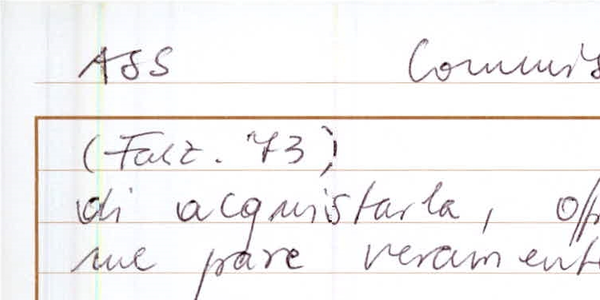 ASS Commis
(Falz. 73)
di acquistarla, off
me pare verament